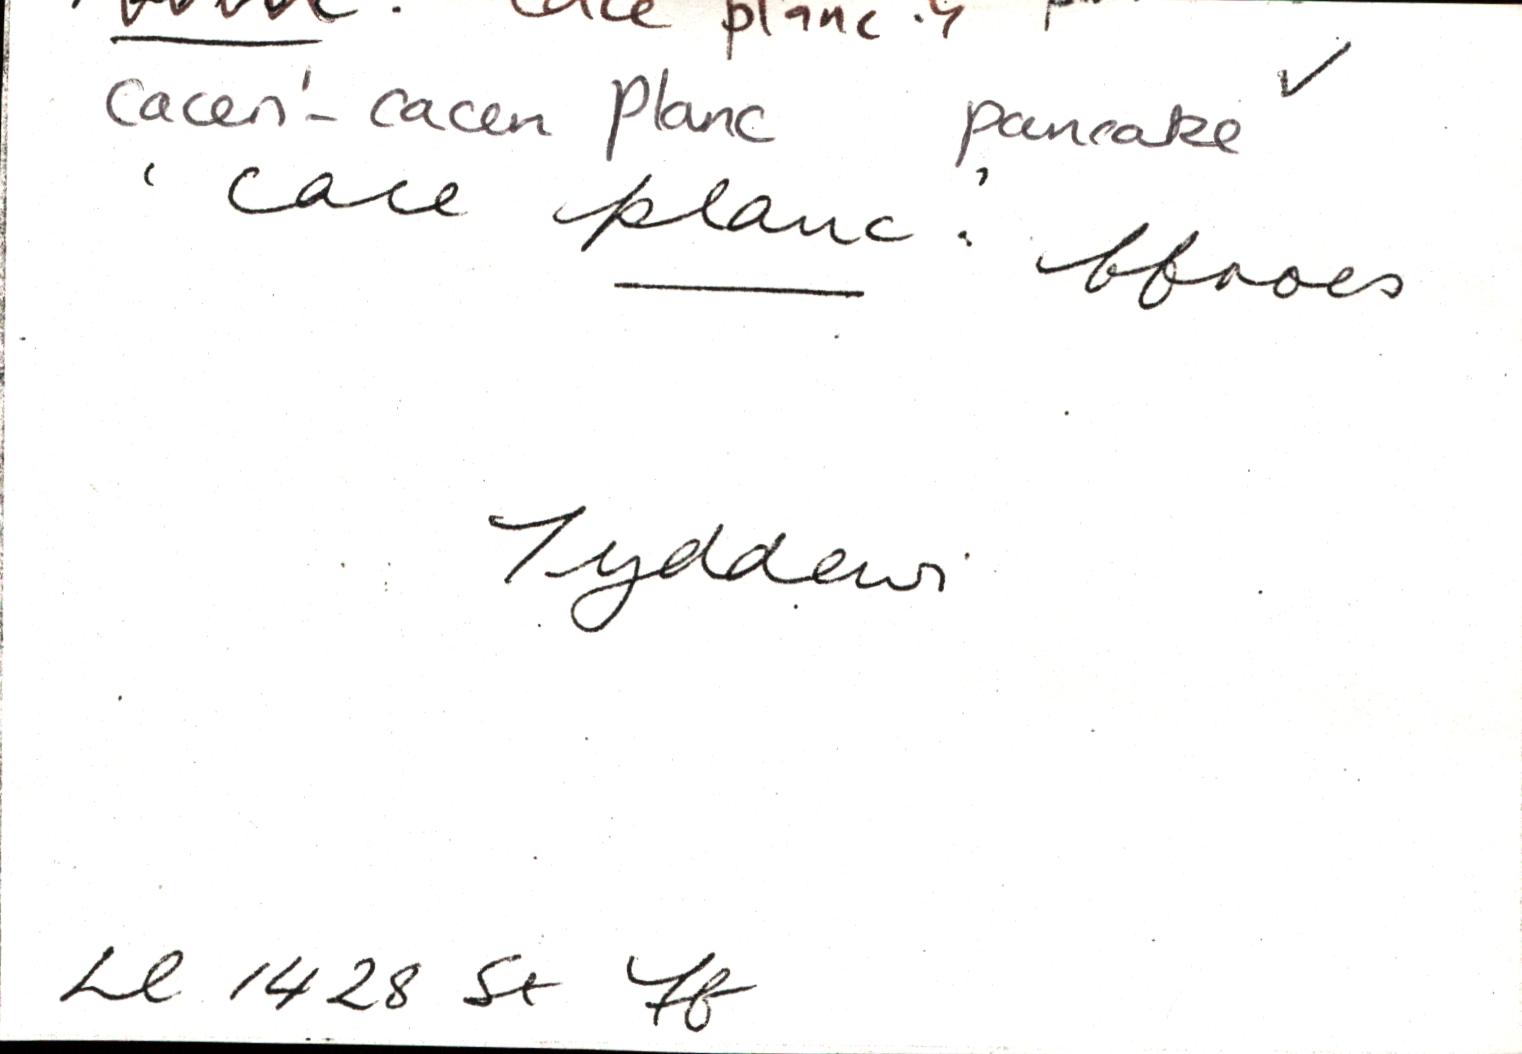 cace planc . y
cacen - cacen planc pancake ✓
' cace planc . ' ffroes
Tyddewi
Ll 1428 St Ff